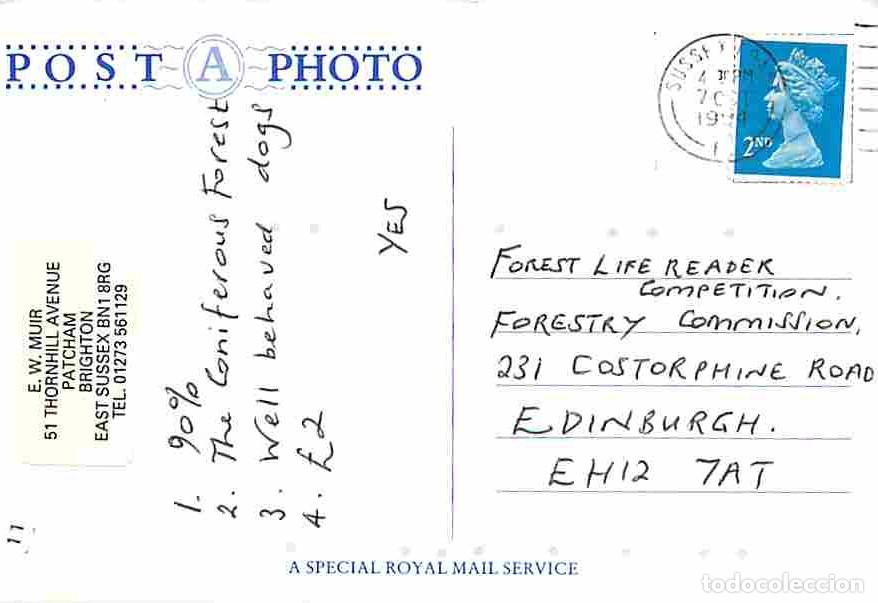 POST A PHOTO
SUSSEX
4 PM
7 OCT
1994
2ND
E. W. MUIR
51 THORNHILL AVENUE
PATCHAM
BRIGHTON
EAST SUSSEX BN1 8RG
TEL. 01273 561129
1. 90%
2. The Coniferous Forest
3. Well behaved dogs
4. £2
YES
FOREST LIFE READER
COMPETITION.
FORESTRY COMMISSION,
231 COSTORPHINE ROAD
EDINBURGH.
EH12 7AT
A SPECIAL ROYAL MAIL SERVICE
todocoleccion